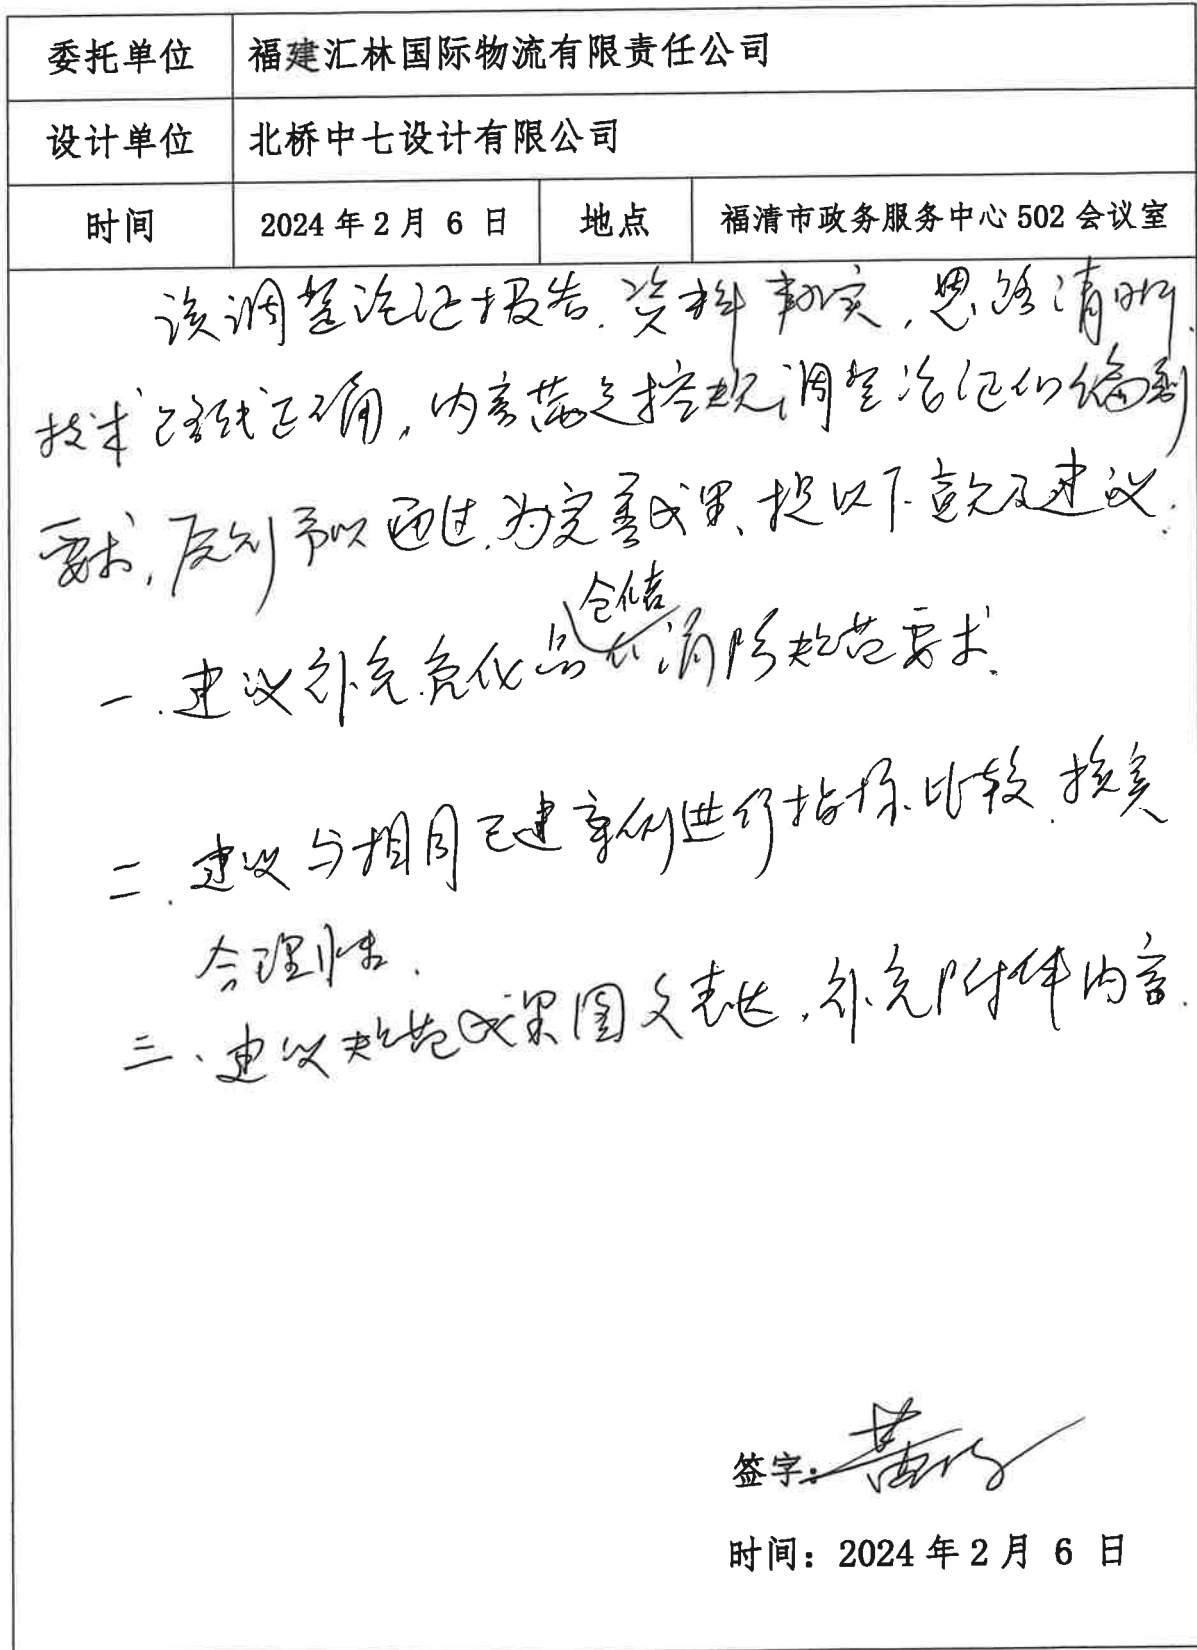 委托单位 福建汇林国际物流有限责任公司
设计单位 北桥中七设计有限公司
时间 2024年2月6日 地点 福清市政务服务中心502会议室
该调整论证报告.资料翔实,思路清晰.
技术路线正确,内容满足控规调整论证的编制
要求,原则予以通过.为完善成果、提以下意见及建议.
仓储
一.建议补充危化品在消防规范要求.
二.建议与相同已建案例进行指标比较.
合理性.
三、建议规范成果图文表达,补充附件内容.
签字:黄
时间:2024年2月6日